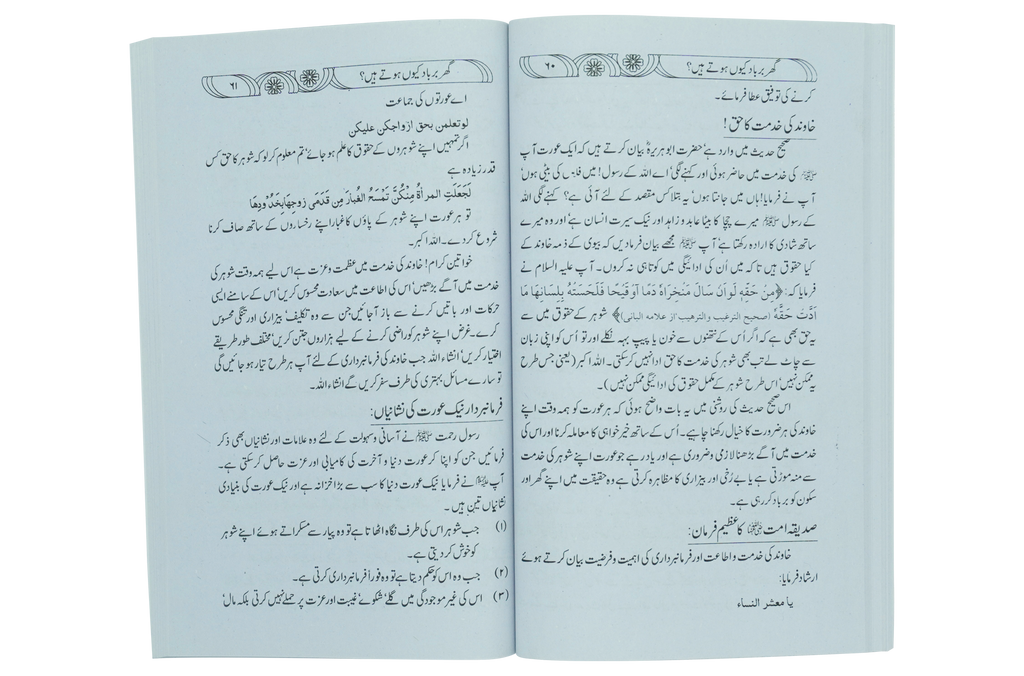 گھر برباد کیوں ہوتے ہیں؟ ۶۰
کرنے کی توفیق عطا فرمائے۔
خاوند کی خدمت کا حق!
صحیح حدیث میں وارد ہے' حضرت ابوہریرہؓ بیان کرتے ہیں کہ ایک عورت آپ
ﷺ کی خدمت میں حاضر ہوئی اور کہنے لگی' اے اللہ کے رسول! میں فلاں کی بیٹی ہوں'
آپ نے فرمایا! ہاں میں جانتا ہوں' یہ بتلا کس مقصد کے لئے آئی ہے؟ کہنے لگی اللہ
کے رسول ﷺ میرے چچا کا بیٹا عابد و زاہد اور نیک سیرت انسان ہے' اور وہ میرے
ساتھ شادی کا ارادہ رکھتا ہے' آپ ﷺ مجھے بیان فرما دیں کہ بیوی کے ذمہ خاوند کے
کیا حقوق ہیں تاکہ میں اُن کی ادائیگی میں کوتاہی نہ کروں۔ آپ علیہ السلام نے
فرمایا کہ: ﴿مِنْ حَقِّهِ لَوْ اَنْ سَالَ مَنْخِرَاهُ دَمًا اَوْ قَيْحًا فَلَحَسَتْهُ بِلِسَانِهَا مَا
اَدَّتْ حَقَّهُ (صحیح الترغیب والترهیب' از علامه البانی)﴾ شوہر کے حقوق میں سے
یہ حق بھی ہے کہ اگر اُس کے نتھنوں سے خون یا پیپ بہہ نکلے اور تو اُس کو اپنی زبان
سے چاٹ لے تب بھی شوہر کی خدمت کا حق ادا نہیں کر سکتی۔ اللہ اکبر (یعنی جس طرح
یہ ممکن نہیں' اس طرح شوہر کے مکمل حقوق کی ادائیگی ممکن نہیں)۔
اس صحیح حدیث کی روشنی میں یہ بات واضح ہوئی کہ ہر عورت کو ہمہ وقت اپنے
خاوند کی ہر ضرورت کا خیال رکھنا چاہیے۔ اُس کے ساتھ خیر خواہی کا معاملہ کرنا اور اس کی
خدمت میں آگے بڑھنا لازمی و ضروری ہے اور یاد رہے جو عورت اپنے شوہر کی خدمت
سے منہ موڑتی ہے یا بے رُخی اور بیزاری کا مظاہرہ کرتی ہے وہ حقیقت میں اپنے گھر اور
سکون کو برباد کر رہی ہے۔
صدیقہ امت رضی اللہ عنہا کا عظیم فرمان:
خاوند کی خدمت و اطاعت اور فرمانبرداری کی اہمیت و فرضیت بیان کرتے ہوئے
ارشاد فرمایا:
یا معشر النساء
گھر برباد کیوں ہوتے ہیں؟ ۶۱
اے عورتوں کی جماعت
لو تعلمن بحق ازواجکن علیکن
اگر تمہیں اپنے شوہروں کے حقوق کا علم ہو جائے' تم معلوم کر لو کہ شوہر کا حق کس
قدر زیادہ ہے
لَجَعَلَتِ المرأۃُ مِنْکُنَّ تَمْسَحُ الغُبارَ مِن قَدَمَی زوجِها بَخَدِّ وذها
تو ہر عورت اپنے شوہر کے پاؤں کا غبار اپنے رخساروں کے ساتھ صاف کرنا
شروع کر دے۔ اللہ اکبر۔
خواتین کرام! خاوند کی خدمت میں عظمت و عزت ہے اس لیے ہمہ وقت شوہر کی
خدمت میں آگے بڑھیں' اس کی اطاعت میں سعادت محسوس کریں' اس کے سامنے ایسی
حرکات اور باتیں کرنے سے باز آجائیں جن سے وہ تکلیف' بیزاری اور تنگی محسوس
کرے۔ غرض اپنے شوہر کو راضی کرنے کے لیے ہزاروں جتن کریں' مختلف طور طریقے
اختیار کریں' انشاء اللہ جب خاوند کی فرمانبرداری کے لئے آپ ہر طرح تیار ہو جائیں گی
تو سارے مسائل بہتری کی طرف سفر کریں گے انشاء اللہ۔
فرمانبردار نیک عورت کی نشانیاں:
رسول رحمت ﷺ نے آسانی و سہولت کے لئے وہ علامات اور نشانیاں بھی ذکر
فرمائیں جن کو اپنا کر عورت دنیا و آخرت کی کامیابی اور عزت حاصل کر سکتی ہے۔
آپ ﷺ نے فرمایا نیک عورت دنیا کا سب سے بڑا خزانہ ہے اور نیک عورت کی بنیادی
نشانیاں تین ہیں۔
(۱) جب شوہر اس کی طرف نگاہ اٹھاتا ہے تو وہ پیار سے مسکراتے ہوئے اپنے شوہر
کو خوش کر دیتی ہے۔
(۲) جب وہ اس کو حکم دیتا ہے تو وہ فوراً فرمانبرداری کرتی ہے۔
(۳) اس کی غیر موجودگی میں گلے' شکوے' غیبت اور عزت پر حملے نہیں کرتی بلکہ مال'